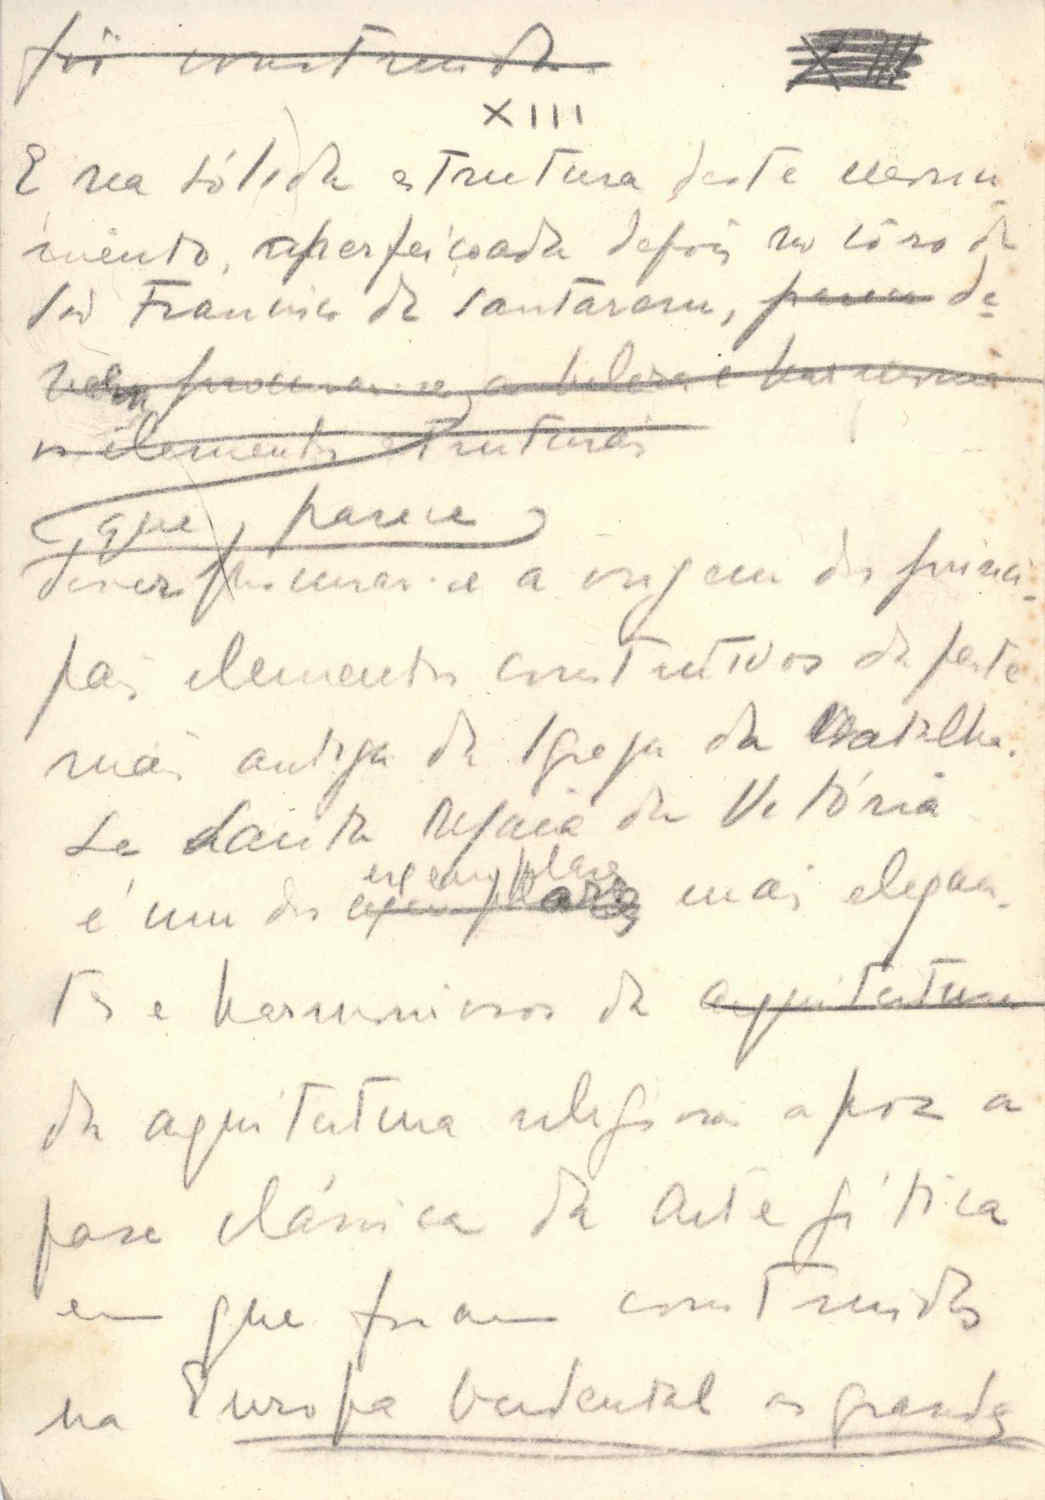 foi construida.
XIII
XIII
E na sólida estrutura deste monu-
mento, aperfeiçoada depois no côro de
São Francisco de Santarem, parece de-
vem procurar-se a beleza e harmonia
os elementos estruturais
que, parece
dever procurar-se a origem dos princi-
pais elementos construtivos da parte
mais antiga da Igreja da Batalha.
Se Santa Maria da Vitória
é um dos exemplares exemplares mais elegan-
tes e harmoniosos da arquitectura
da arquitectura religiosa apoz a
fase clássica da arte gótica
em que foram construidas
na Europa Ocidental as grandes